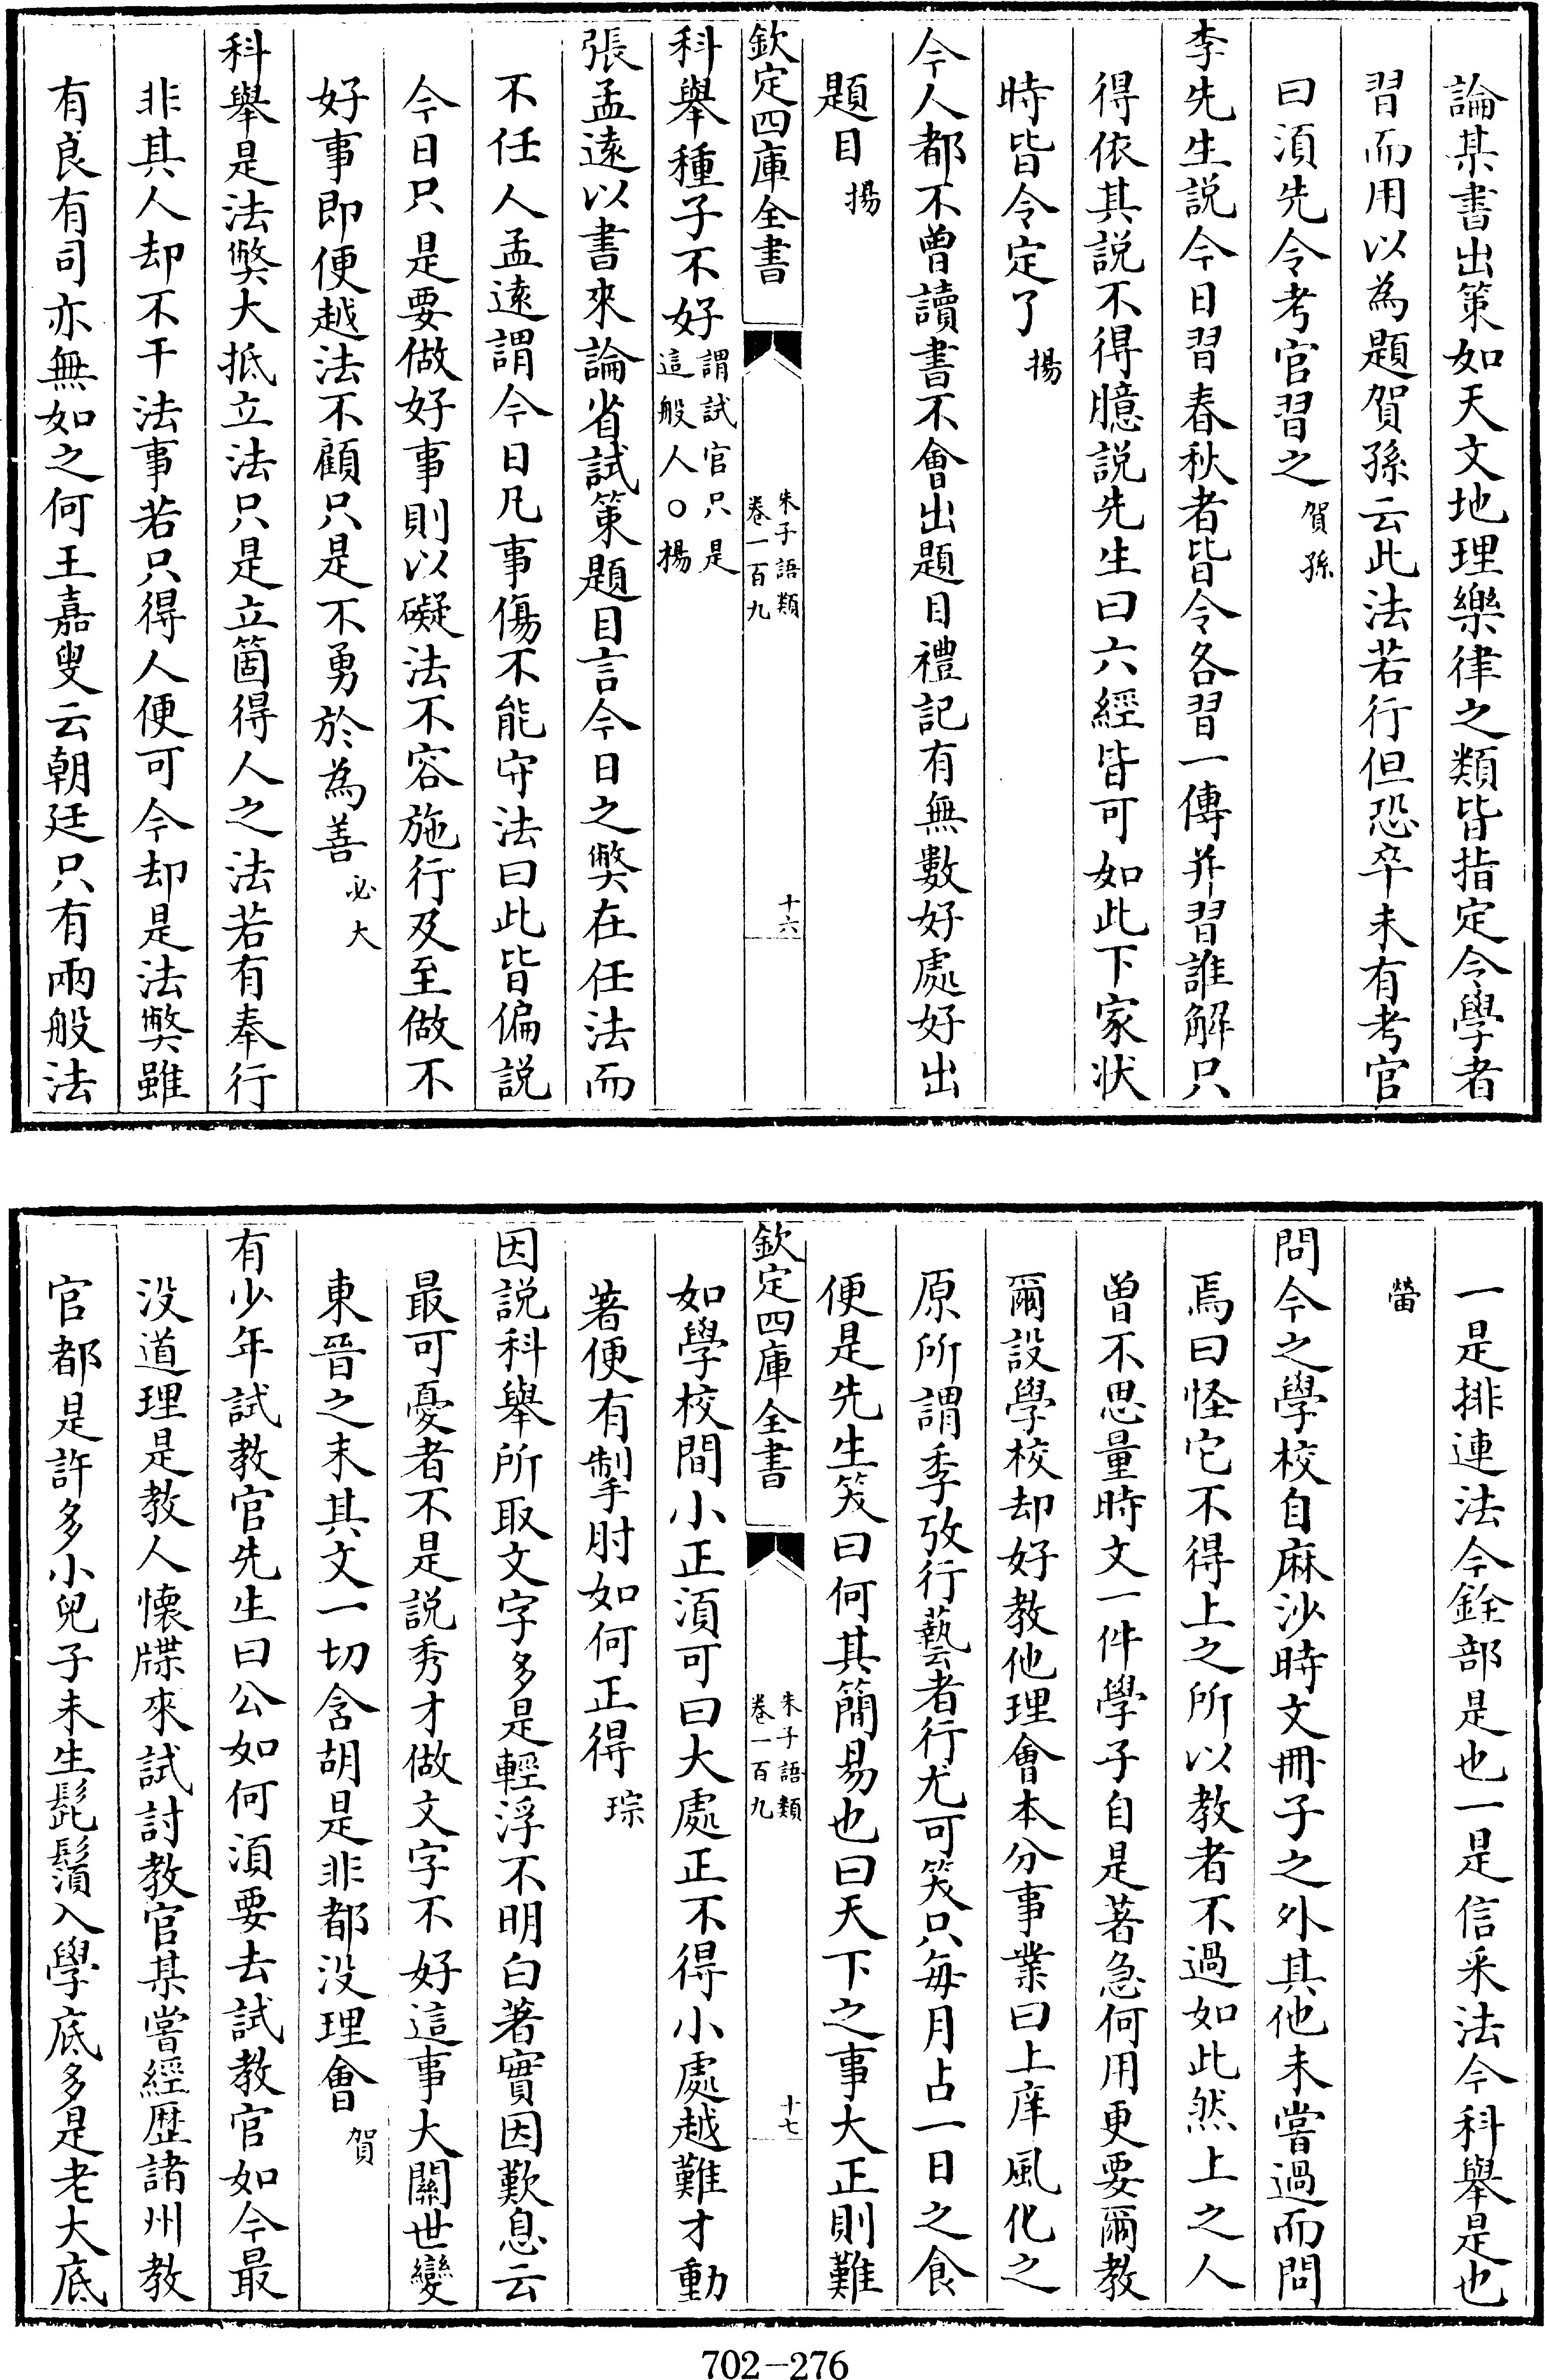 論某書出策如天文地理樂律之類皆指定令學者
習而用以為題賀孫云此法若行但恐卒未有考官
曰須先令考官習之賀孫
李先生説今日習春秋者皆令各習一傳并習誰解只
得依其説不得臆説先生曰六經皆可如此下家狀
時皆令定了揚
今人都不曾讀書不會出題目禮記有無數好處好出
題目揚
欽定四庫全書
朱子語類
卷一百九
十六
科舉種子不好謂試官只是
這般人○揚
張孟遠以書來論省試策題目言今日之弊在任法而
不任人孟遠謂今日凡事傷不能守法曰此皆偏説
今日只是要做好事則以礙法不容施行及至做不
好事即便越法不顧只是不勇於為善必大
科舉是法弊大抵立法只是立箇得人之法若有奉行
非其人却不干法事若只得人便可今却是法弊雖
有良有司亦無如之何王嘉叟云朝廷只有兩般法
一是排連法今銓部是也一是信采法今科舉是也
㽦
問今之學校自麻沙時文冊子之外其他未嘗過而問
焉曰怪它不得上之所以教者不過如此然上之人
曽不思量時文一件學子自是著急何用更要爾教
爾設學校却好教他理會本分事業曰上庠風化之
原所謂季攷行藝者行尤可笑只每月占一日之食
便是先生笑曰何其簡易也曰天下之事大正則難
欽定四庫全書
朱子語類
卷一百九
十七
如學校間小正須可曰大處正不得小處越難才動
著便有掣肘如何正得琮
因説科舉所取文字多是輕浮不明白著實因歎息云
最可憂者不是説秀才做文字不好這事大關世變
東晉之末其文一切含胡是非都没理會賀
有少年試教官先生曰公如何須要去試教官如今最
没道理是教人懷牒來試討教官某嘗經歴諸州教
官都是許多小兒子未生髭鬚入學底多是老大底
702-276